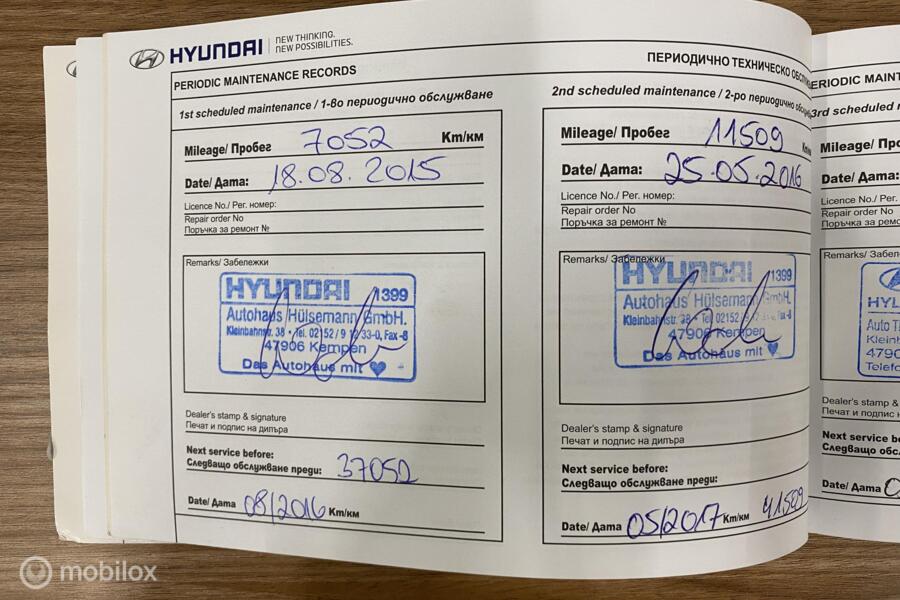 HYUNDAI NEW THINKING. NEW POSSIBILITIES.
PERIODIC MAINTENANCE RECORDS
ПЕРИОДИЧНО ТЕХНИЧЕСКО
1st scheduled maintenance / 1-во периодично обслужване
Mileage/ Пробег 7052 Km/км
Date/ Дата: 18.08.2015
Licence No./ Рег. номер:
Repair order No
Поръчка за ремонт №
Remarks/ Забележки
HYUNDAI 1399
Autohaus Hülsemann GmbH.
Kleinbahnstr. 38 • Tel. 02152/9 12 33-0, Fax -8
47906 Kempen
Das Autohaus mit
Dealer's stamp & signature
Печат и подпис на дилъра
Next service before:
Следващо обслужване преди: 37052
Date/ Дата 08/2016 Km/км
2nd scheduled maintenance / 2-ро периодично
Mileage/ Пробег 11509
Date/ Дата: 25.05.2016
Licence No./ Рег. номер:
Repair order No
Поръчка за ремонт №
Remarks/ Забележки
HYUNDAI 1399
Autohaus Hülsemann GmbH.
Kleinbahnstr. 38 • Tel. 02152/9 12
47906 Kempen
Das Autohaus mit
Dealer's stamp & signature
Печат и подпис на дилъра
Next service before:
Следващо обслужване преди:
Date/ Дата 05/2017 Km/км 41509
3rd scheduled
Mileage/
Date/ Дата:
Licence No./
Repair order No
Поръчка за ремонт
Remarks/ Забележки
Auto
Dealer's stamp &
Печат и подпис на
Next service before:
Следващо
Date/ Дата
mobilox